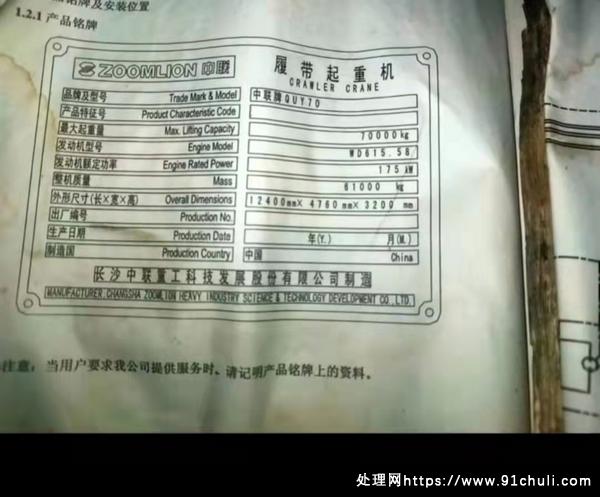 品铭牌及安装位置
1.2.1 产品铭牌
ZOOMLION 中联 履带起重机
CRAWLER CRANE
品牌及型号 Trade Mark & Model 中联牌QUY70
产品特征号 Product Characteristic Code
最大起重量 Max. Lifting Capacity 70000kg
发动机型号 Engine Model WD615.58
发动机额定功率 Engine Rated Power 175 kW
整机质量 Mass 61000 kg
外形尺寸(长×宽×高) Overall Dimensions 12400mm× 4760 mm× 3200 mm
出厂编号 Production No.
生产日期 Production Date 年(Y.) 月(M.)
制造国 Production Country 中国 China
长沙中联重工科技发展股份有限公司制造
MANUFACTURER:CHANGSHA ZOOMLION HEAVY INDUSTRY SCIENCE & TECHNOLOGY DEVELOPMENT CO.,LTD.
注意：当用户要求我公司提供服务时、请记明产品铭牌上的资料。
处理网https://www.91chuli.com/